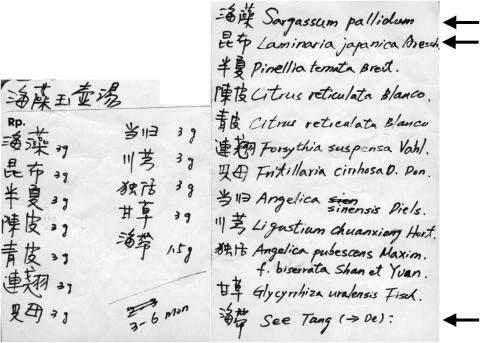 海藻玉壺湯
Rp.
海藻 3g
昆布 3g
半夏 3g
陳皮 3g
青皮 3g
連翹 3g
貝母 3g
当归 3g
川芎 3g
独活 3g
甘草 3g
海帯 1.5g
3-6 mon
海藻 Sargassum pallidum
昆布 Laminaria japonica Aresch.
半夏 Pinellia ternata Breit.
陳皮 Citrus reticulata Blanco.
青皮 Citrus reticulata Blanco
連翹 Forsythia suspensa Vahl.
贝母 Fritillaria cirrhosa D. Don.
当归 Angelica sinensis Diels.
川芎 Ligustium chuanxiong Hort.
独活 Angelica pubescens Maxim.
f. biserrata Shan et Yuan.
甘草 Glycyrrhiza uralensis Fisch.
海帯 See Tang (→ De):